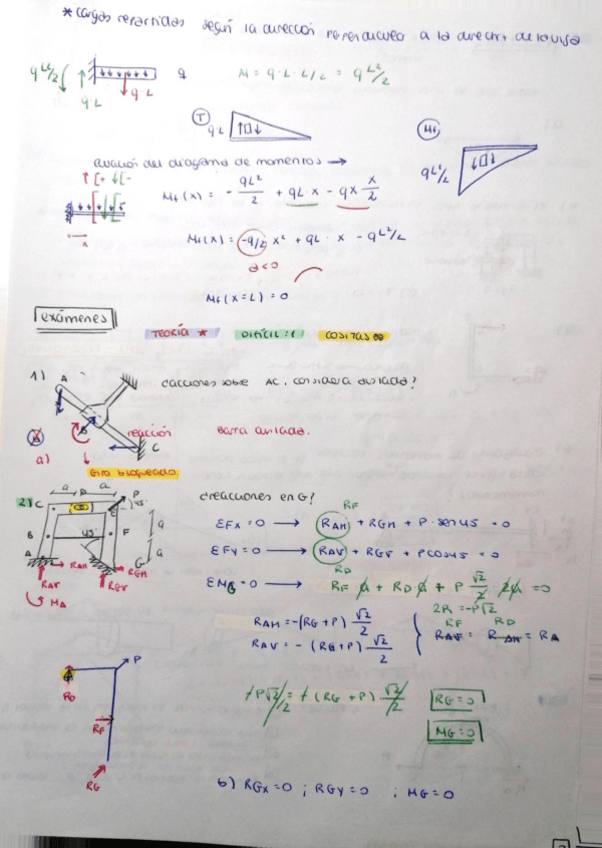 * cargas repartidas según la dirección perpendicular a la directr. de la viga
qL²/2 qL q·L q M = q·L·L/2 = qL²/2
T q·L
Mf qL²/2
ecuación del diagrama de momentos →
Mf(x) = - qL²/2 + qL·x - qx x/2
x
Mf(x) = -q/2 x² + qL·x - qL²/2
a<0
Mf(x=L) = 0
exámenes
TEORÍA * DIFÍCIL :( COSITAS
1) A cacciones sobre AC, considera aislada?
B C reacción barra aislada.
a) ↓
Giro bloqueado
2) a a P 45° ¿reacciones en G?
C D E B F A G 45° a a
RAH RAV MA RGH RGV
RF
ΣFx=0 → RAH + RGH + P·sen45 = 0
ΣFy=0 → RAV + RGV + Pcos45 = 0
RD
ΣMG=0 → RF·a + RD·a + P √2/2 · 2a = 0
2R = -P√2
RAH = -(RG+P) √2/2
RAV = -(RG+P) √2/2
RF RD
RAV = RAH = RA
P RD RF RG
+P√2/2 = +(RG+P) √2/2 RG=0
MG=0
b) RGX=0 ; RGY=0 ; MG=0